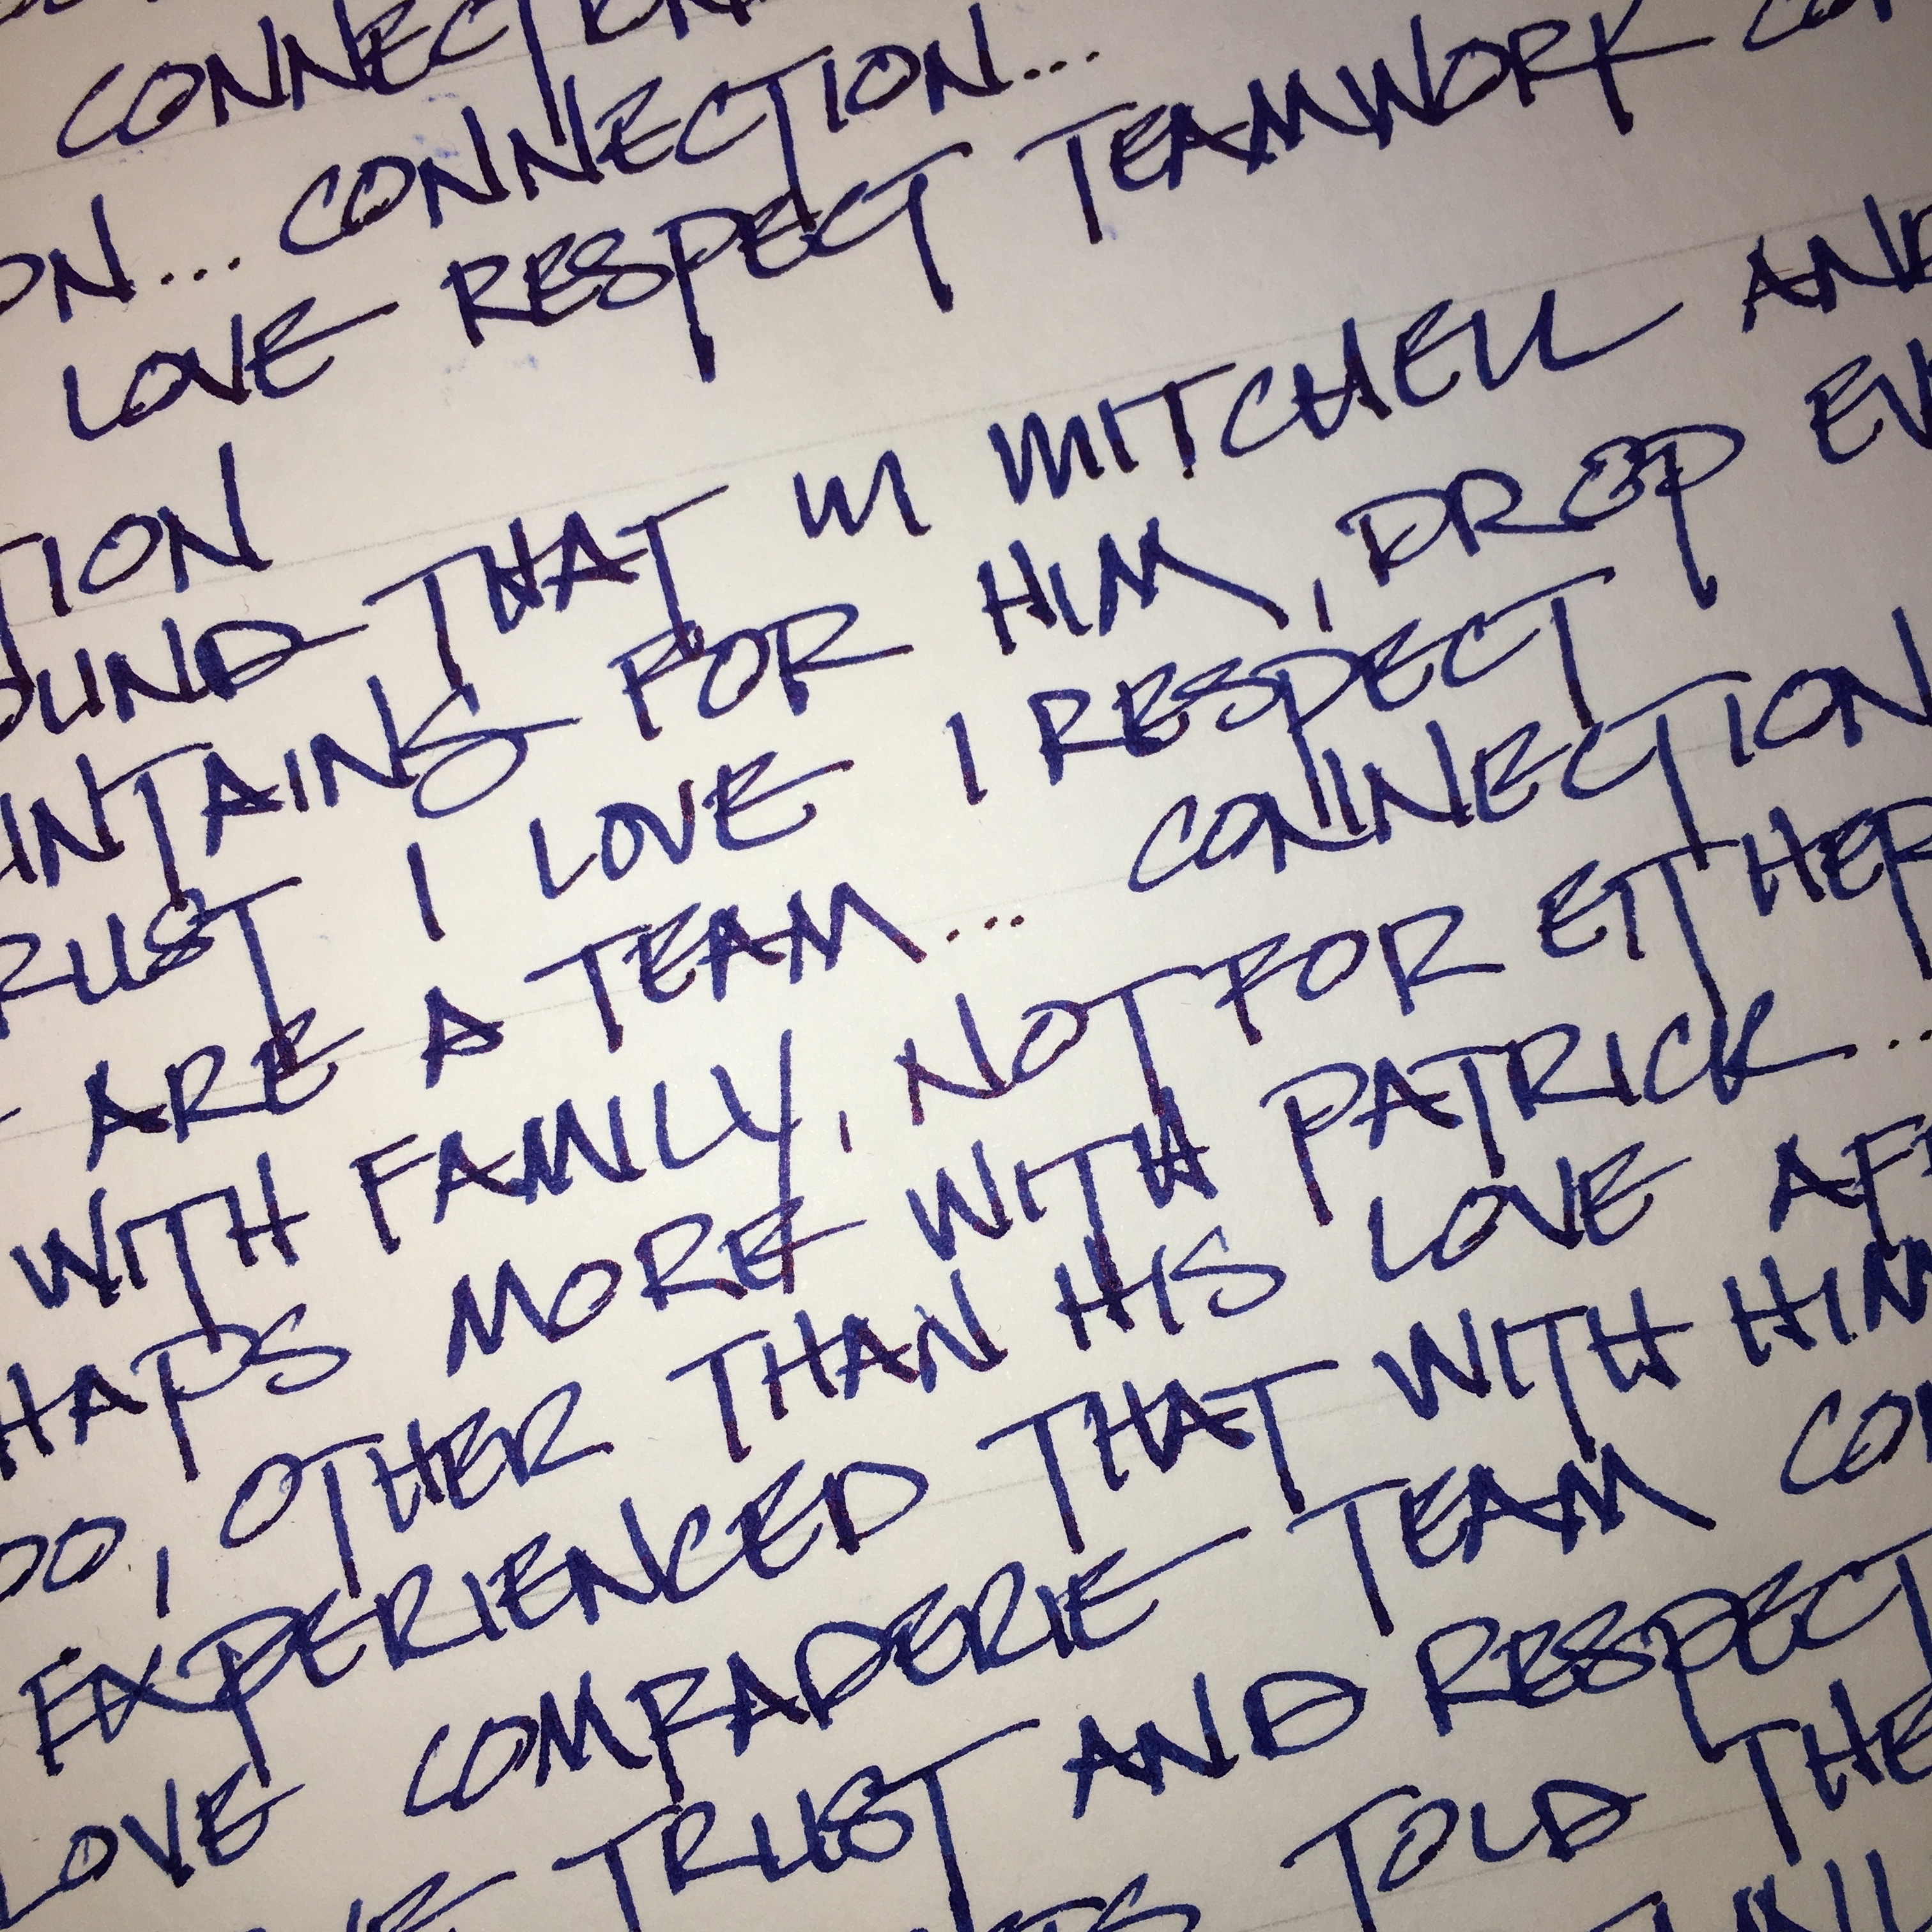 CONNECTION
ON... CONNECTION...
LOVE RESPECT TEAMWORK CO
TION
OUND THAT IN MITCHELL AND
UNTAINS FOR HIM, DROP EV
RUST I LOVE I RESPECT
ARE A TEAM... CONNECTION
WITH FAMILY, NOT FOR EITHER
HAPS MORE WITH PATRICK...
DO, OTHER THAN HIS LOVE AF
EXPERIENCED THAT WITH HIM
LOVE COMRADERIE TEAM CO
TRUST AND RESPECT
TOLD THE